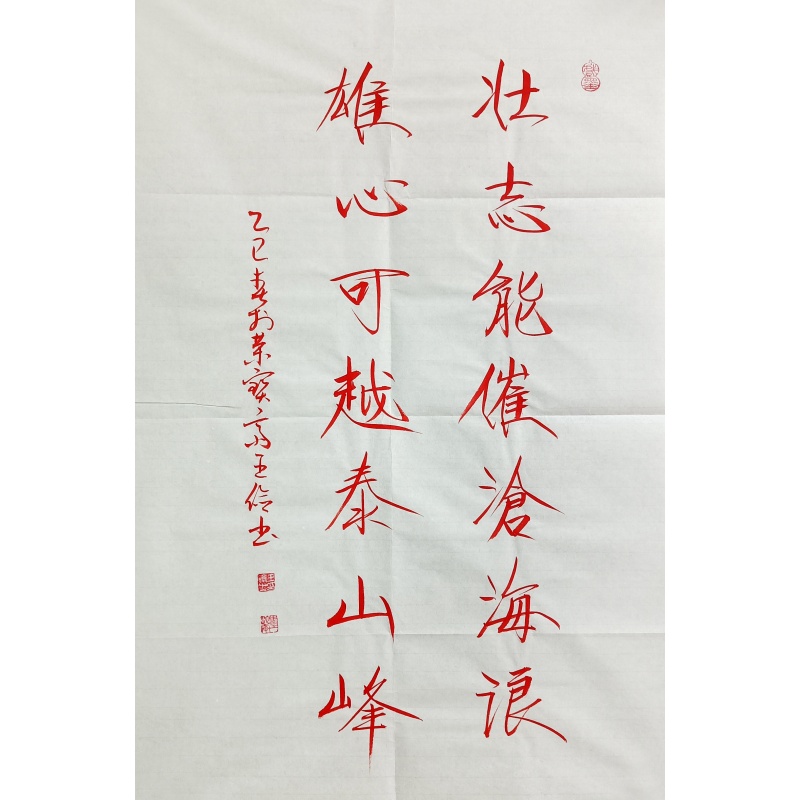 壮志能催滄海浪
雄心可越泰山峰
乙巳春於荣寶斋王俭书